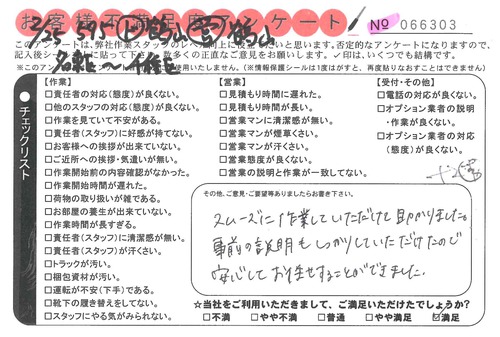 お客様不満足度アンケート! No 066303
2/25 595
このアンケートは、弊社作業スタッフのレベル向上に役立てたいと思います。否定的なアンケートになりますので、
※このアンケート
【作業】
□責任者の対応(態度)が良くない。
□他のスタッフの対応(態度)が良くない。
□作業を見ていて不安がある。
□責任者(スタッフ)に好感が持てない。
□お客様への挨拶が出来ていない。
□ご近所への挨拶・気遣いが無い。
□作業開始前の内容確認がなかった。
□作業開始時間が遅れた。
□荷物の取り扱いが雑である。
□お部屋の養生が出来ていない。
□作業時間が長すぎる。
□責任者(スタッフ)に清潔感が無い。
□責任者(スタッフ)が汗くさい。
□トラックが汚い。
□梱包資材が汚い。
□運転が不安(下手)である。
□靴下の履き替えをしてない。
□スタッフにやる気がみられない。
【営業】
□見積もり時間に遅れた。
□見積もり時間が長い。
□営業マンに清潔感が無い。
□営業マンが煙草くさい。
□営業マンが汗くさい。
□営業態度が良くない。
□営業の説明と作業が一致してない。
【受付・その他】
□電話の対応が良くない。
□オプション業者の説明
・作業が良くない。
□オプション業者の対応
(態度)が良くない。
チェックリスト
その他、ご意見・ご要望等ありましたらお書き下さい。
スムーズに作業していただけて助かりました。
事前の説明もしっかりしていただけたので
安心してお任せすることができました。
☆当社をご利用いただきまして、ご満足いただけたでしょうか?
□不満 □やや不満 □普通 □やや満足 ☑満足